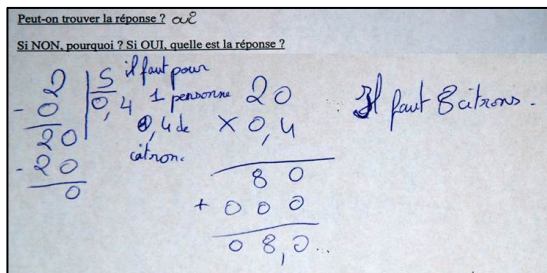 Peut-on trouver la réponse ? oui
Si NON, pourquoi ? Si OUI, quelle est la réponse ?
2 | 5
- 0 | 0,4
20
- 20
0
il faut pour
1 personne
0,4 de
citron.
20
× 0,4
80
+ 000
08,0...
Il faut 8 citrons.